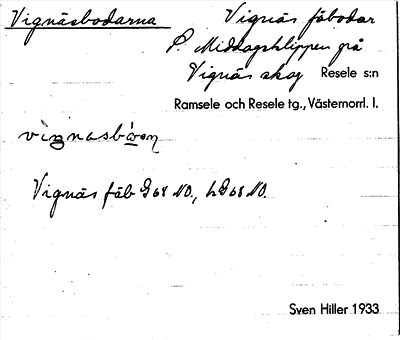 Vignäsbodarna
Vignäs fäbodar
P. Middagsklippen på
Vignäs skog Resele s:n
Ramsele och Resele tg., Västernorrl. l.
Vignäs fäb G 68 NO., h G 68 NO.
Sven Hiller 1933